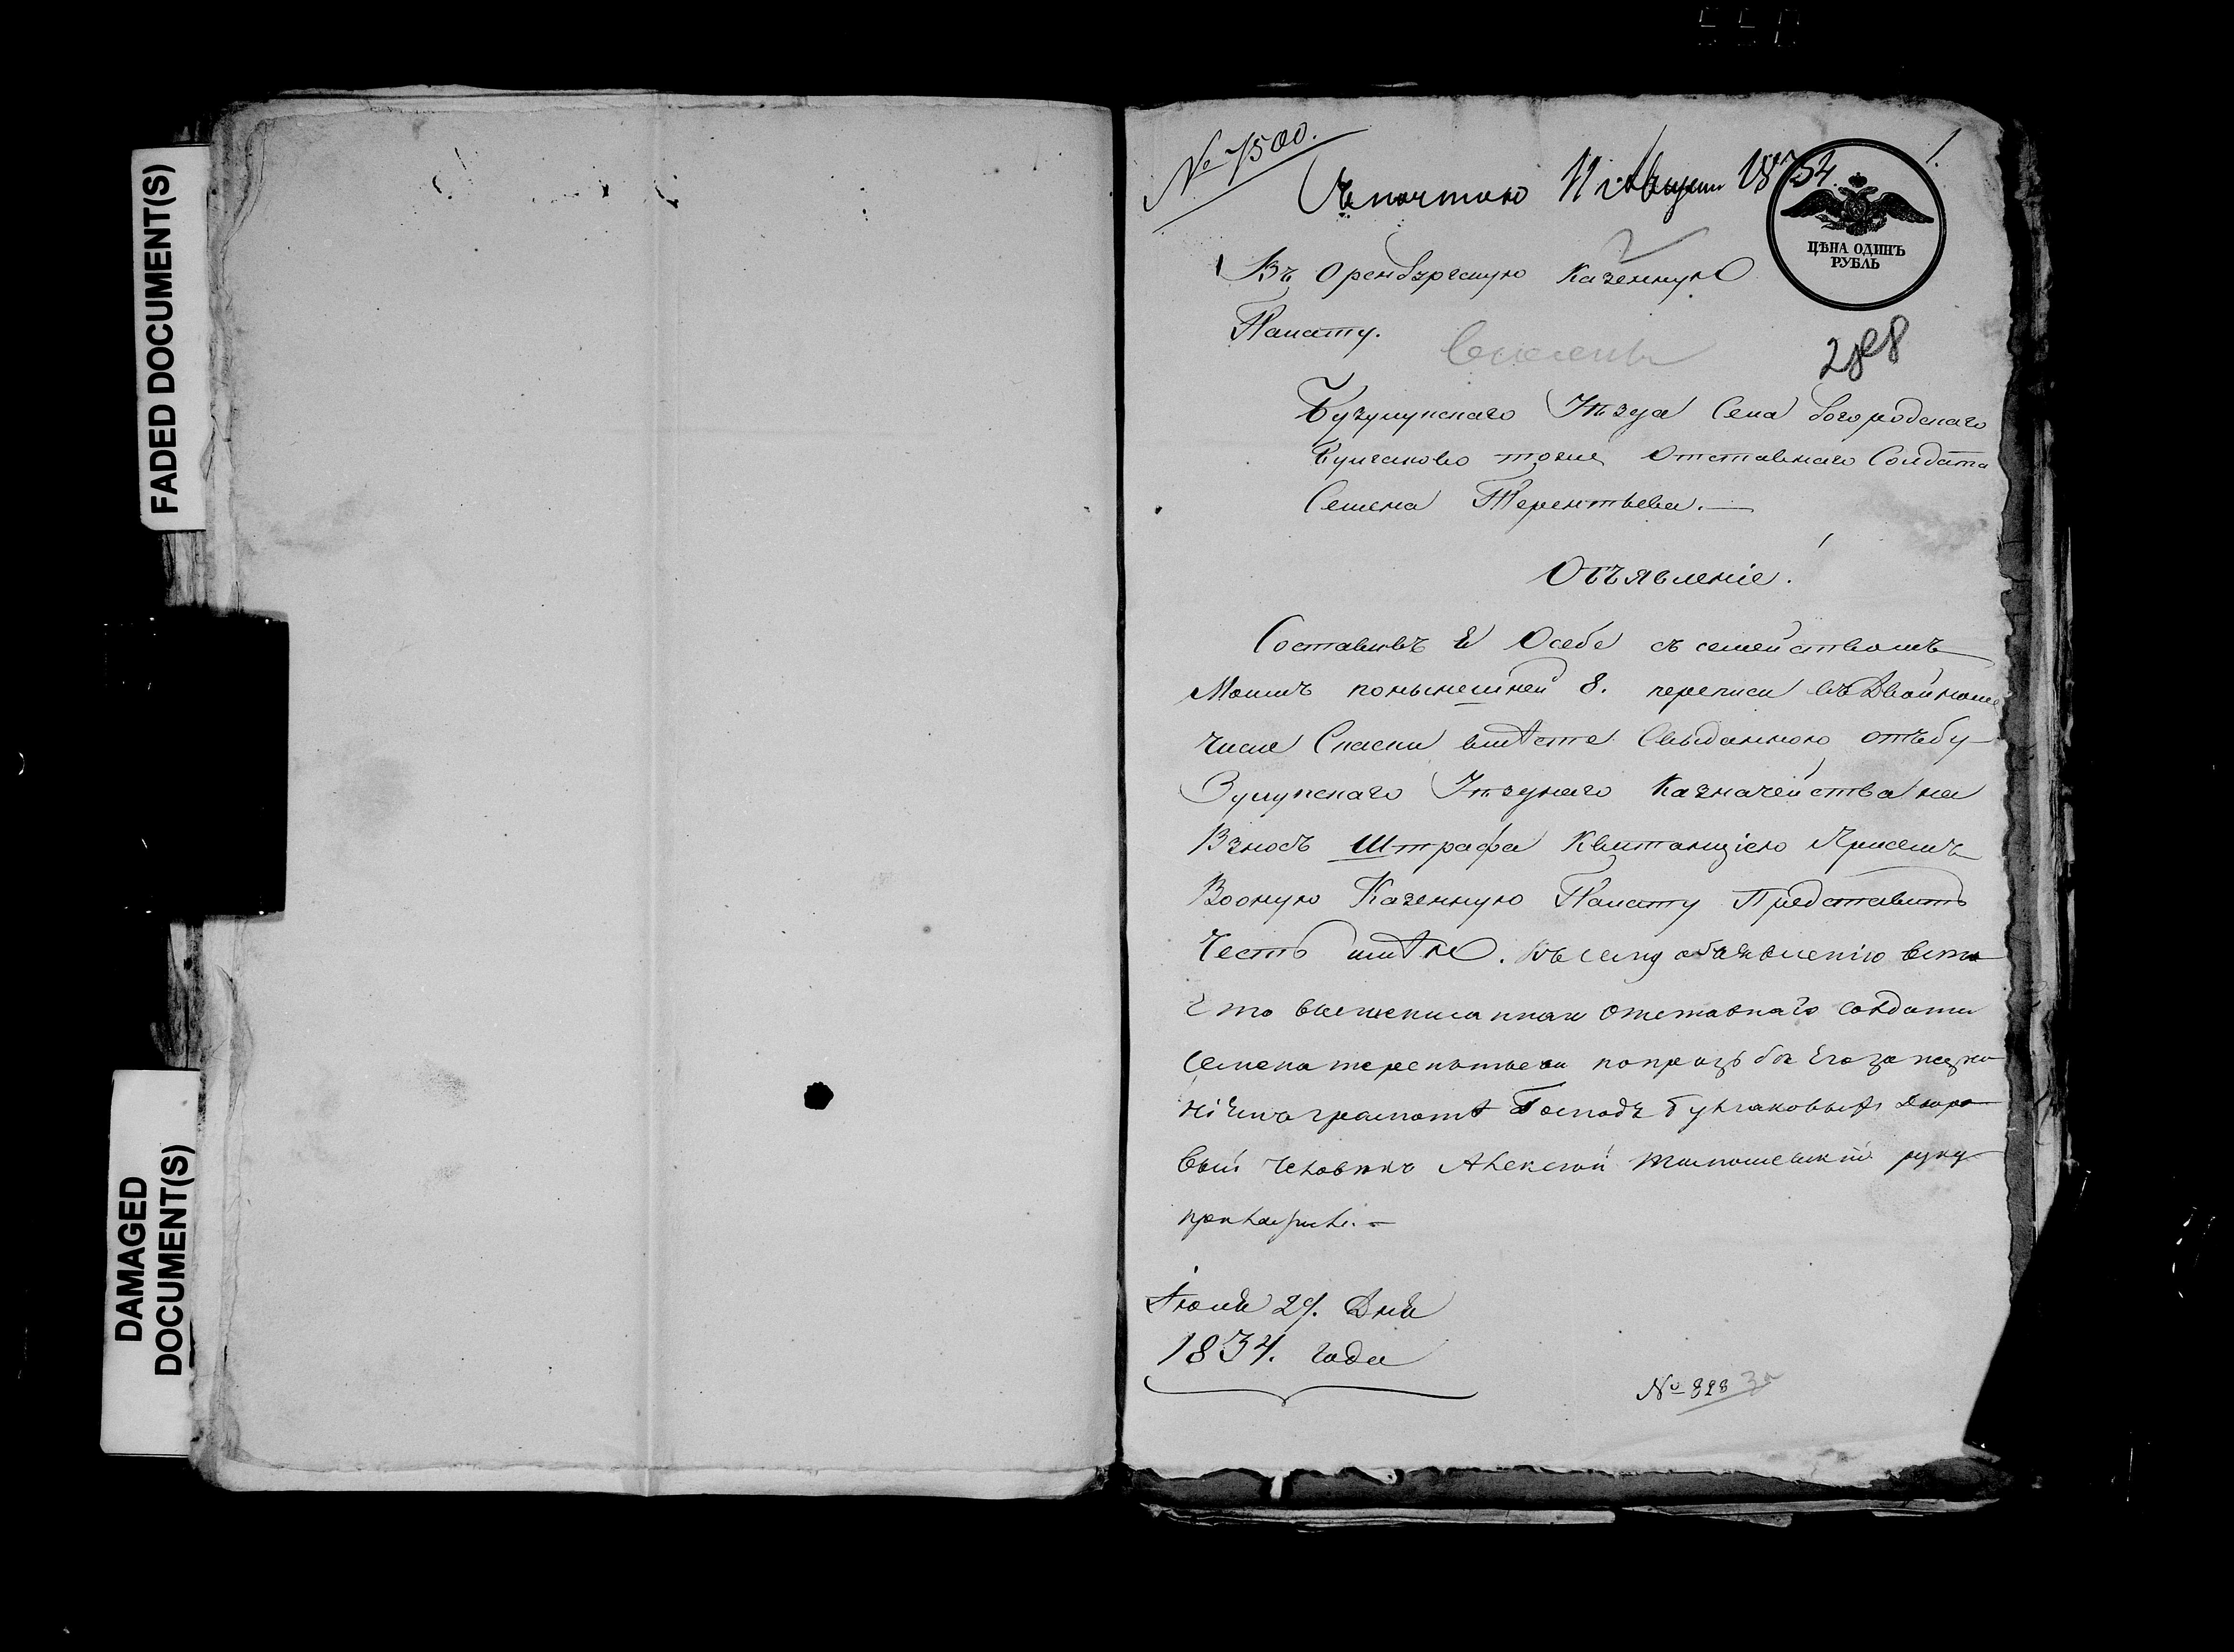 FADED DOCUMENT(S)
DAMAGED
DOCUMENT(S)
№ 7500.
Съ почтою 11 Августа 1834
1.
ЦѢНА ОДИНЪ
РУБЛЬ
Въ Оренбургскую Казенную
Палату.
288
Бузулукскаго Уѣзда Села Богородскаго
Булгаково тожъ Отставнаго Солдата
Семена Терентьева.
Объявленіе.
Составивъ Я Осебе съ семействомъ
Моимъ понынешней 8. переписи въ Двойноме
числе Списки вмѣсте Свыданною отъбу
Зулукскаго Уѣзднаго Казначейства на
Взносъ Штрафа Квитанціею Присемъ
Вооную Казенную Палату Представить
Честь имѣю. Къ сему объявленію вмѣ
сто вышеписаннаго отставнаго солдата
Семена терентьева попрозьбѣ Его за незна
ніемъ грамотѣ Господъ Булгаковыхъ Дворо
вый человѣкъ Алексей руку
приложилъ.
Іюля 29. Дня
1834. года
№ 828